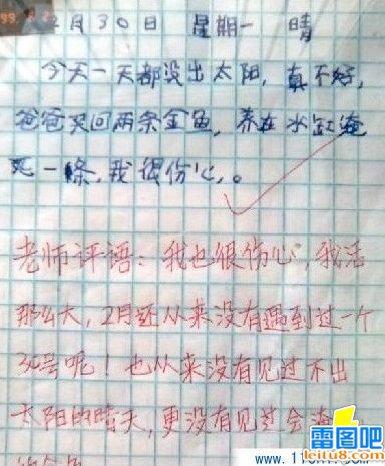 2月30日 星期一 晴
今天一天都没出太阳，真不好，
爸爸买回两条金鱼，养在水缸淹
死一條，我很伤心。
老师评语：我也很伤心，我活
那么大，2月还从来没有遇到过一个
30号呢！也从来没有见过不出
太阳的晴天，更没有见过会淹
的金鱼
雷图吧
leitu8.com